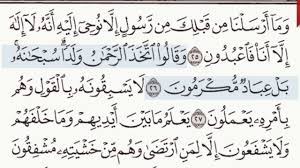 وَمَآ أَرْسَلْنَا مِن قَبْلِكَ مِن رَّسُولٍ إِلَّا نُوحِىٓ إِلَيْهِ أَنَّهُۥ لَآ إِلَٰهَ
إِلَّآ أَنَا۠ فَٱعْبُدُونِ ٢٥ وَقَالُوا۟ ٱتَّخَذَ ٱلرَّحْمَٰنُ وَلَدًا سُبْحَٰنَهُۥ
بَلْ عِبَادٌ مُّكْرَمُونَ ٢٦ لَا يَسْبِقُونَهُۥ بِٱلْقَوْلِ وَهُم
بِأَمْرِهِۦ يَعْمَلُونَ ٢٧ يَعْلَمُ مَا بَيْنَ أَيْدِيهِمْ وَمَا خَلْفَهُمْ
وَلَا يَشْفَعُونَ إِلَّا لِمَنِ ٱرْتَضَىٰ وَهُم مِّنْ خَشْيَتِهِۦ مُشْفِقُونَ